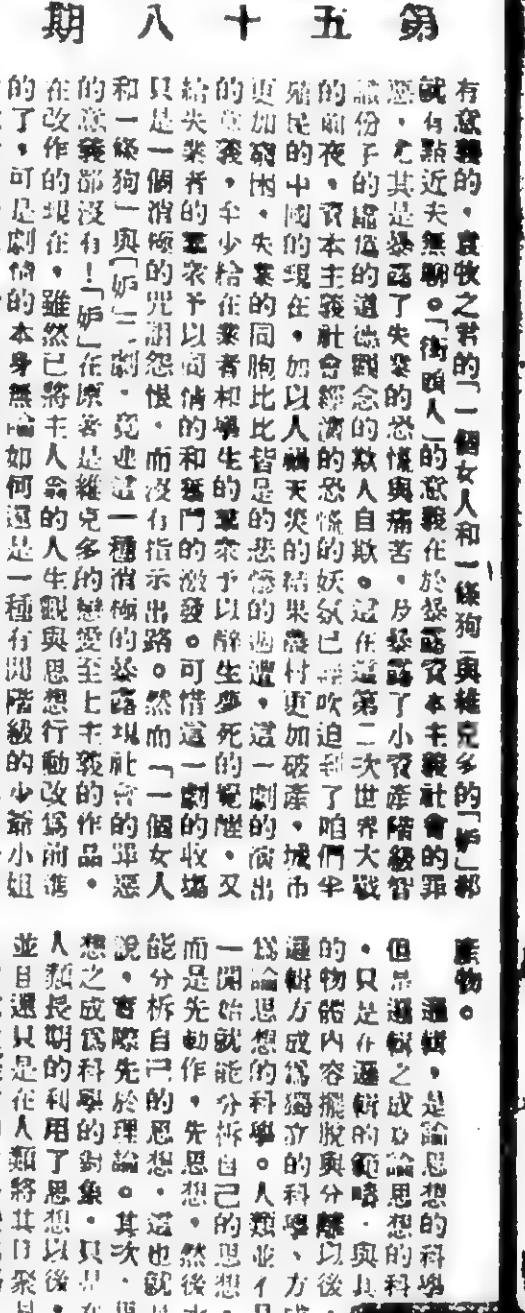 第五十八期
有意義的，袁牧之君的「一個女人和一條狗」與維克多的「妒」都
就有點近夫無聊。「街頭人」的意義在於暴露資本主義社會的罪
惡，尤其是暴露了失業的恐慌與痛苦，及暴露了小資產階級智
識份子的虛偽的道德觀念的欺人自欺。這在這第二次世界大戰
的前夜，資本主義社會經濟的恐慌的妖氛已吹迫到了咱們半
殖民的中國的現在，加以人禍天災的結果農村更加破產，城市
更加窮困，失業的同胞比比皆是的悲慘的過遭，這一劇的演出
的意義，至少給在業者和學生的羣衆予以醉生夢死的覺醒，又
給失業者的羣衆予以同情的和奮鬥的激發。可惜這一劇的收場
只是一個消極的咒詛怨恨，而沒有指示出路。然而「一個女人
和一條狗」與「妒」二劇，竟連這一種消極的暴露現社會的罪惡
的意義都沒有！「妒」在原著是維克多的戀愛至上主義的作品。
在改作的現在，雖然已將主人翁的人生觀與思想行動改爲前進
的了，可是劇情的本身無論如何還是一種有閒階級的少爺小姐
產物。
邏輯，是論思想的科學
但是邏輯之成立論思想的科
，只是在邏輯的範疇，與具
的物體內容擺脫與分離以後
邏輯方成爲獨立的科學，方成
爲論思想的科學。人類並不是
一開始就能分析自己的思想
而是先動作，先思想，然後才
能分析自己的思想，這也就是
說，實際先於理論。其次，
想之成爲科學的對象，只是在
人類長期的利用了思想以後，
並且還只是在人類將其目